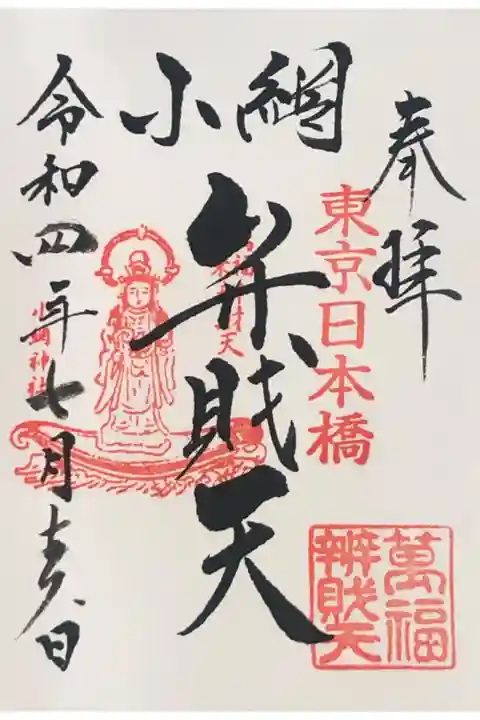 奉拝
東京日本橋
小網
弁財天
萬福
辨財天
小網神社
令和四年七月 日